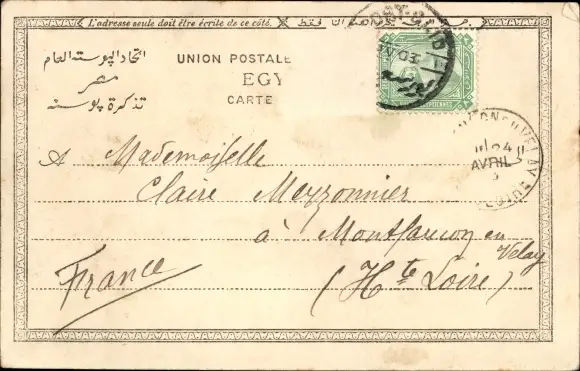 L'adresse seule doit être écrite de ce côté.
اتحاد البوسته العام
مصر
تذكرة بوسته
UNION POSTALE
EGY
CARTE
PORT-SAID
24
AVRIL
A Mademoiselle
Claire Meyzonnier
à Montfaucon en
Velay
France
(Hte Loire)